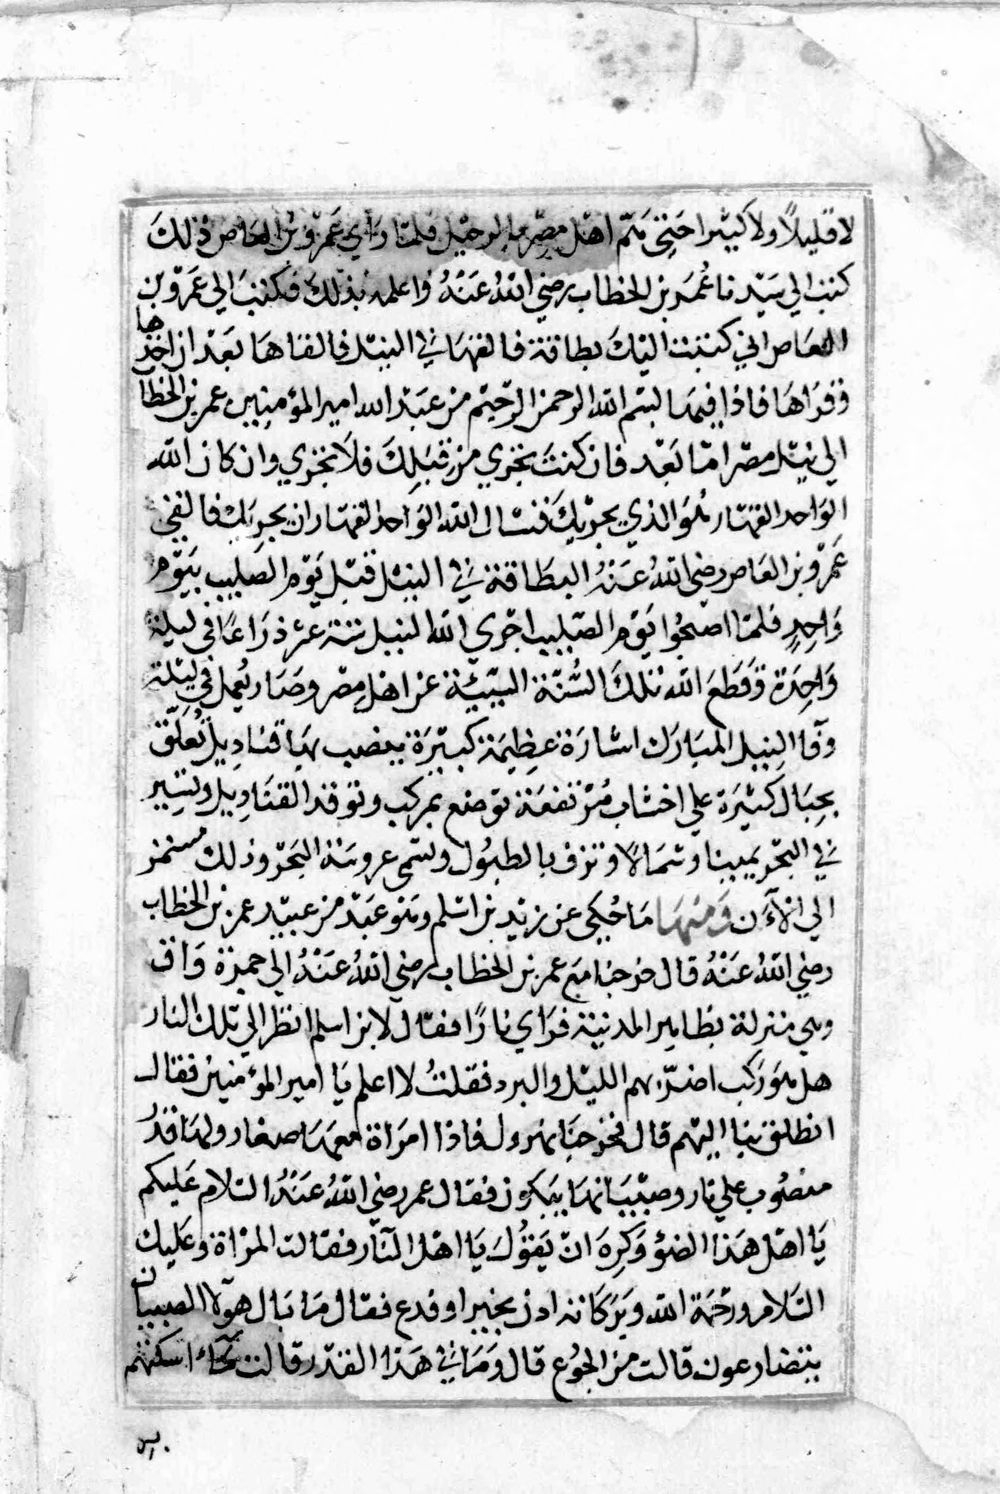 لا قليلاً ولا كثيرا حتى همّ اهل مصر بالرحيل فلما رأي عمرو بن العاص ذلك
كتب الي سيدنا عمر بن الخطاب رضي الله عنه واعلمه بذلك فكتب الي عمرو بن
العاص اني كتبت اليك بطاقة فالقها في النيل فالقاها بعد ان اخذها
وقراها فاذا فيها بسم الله الرحمن الرحيم من عبد الله امير المؤمنين عمر بن الخطاب
الي نيل مصر امّا بعد فان كنت تجري من قبلك فلا تجري وان كان الله
الواحد القهار هو الذي يجريك فنسال الله الواحد القهار ان يجريك فالقي
عمرو بن العاص رضي الله عنه البطاقة في النيل قبل يوم الصليب بيوم
واحد فلما اصبحوا يوم الصليب اجري الله النيل ستة عشر ذراعًا في ليلة
واحدة وقطع الله تلك السُّنّة السيّئة عن اهل مصر وصار يُعمل في ليلة
وفا النيل المبارك اشارة عظيمة كبيرة ينصب بها قناديل تُعلّق
بحبال كثيرة علي اخشاب مرتفعة توضع بمركب وتوقد القناديل وتسير
في البحر يمينا وشمالا وتزف بالطبول وتسمي عروسة البحر وذلك مستمر
الي الآن ومنها ما حُكي عن زيد بن اسلم وهو عبد من عبيد عمر بن الخطاب
رضي الله عنه قال خرجنا مع عمر بن الخطاب رضي الله عنه الي حمرة واق
وهي منزلة بظاهر المدينة فراي نارًا فقال لابن اسلم انظر الي تلك النار
هل هو ركب اضرّ بهم الليل والبرد فقلتُ لا اعلم يا امير المؤمنين فقال
انطلق بنا اليهم قال فخرجنا نهرول فاذا امراة معها صغار ولها قدر
منصوب علي نار وصبيانها يبكون فقال عمر رضي الله عنه السلام عليكم
يا اهل هذا الضؤ وكره ان يقول يا اهل النار فقالت المراة وعليك
السلام ورحمة الله وبركاته ادن بخير او فدع فقال ما بال هولا الصبيان
يتضارعون قالت من الجوع قال وما في هذا القدر قالت ماء اسكتهم